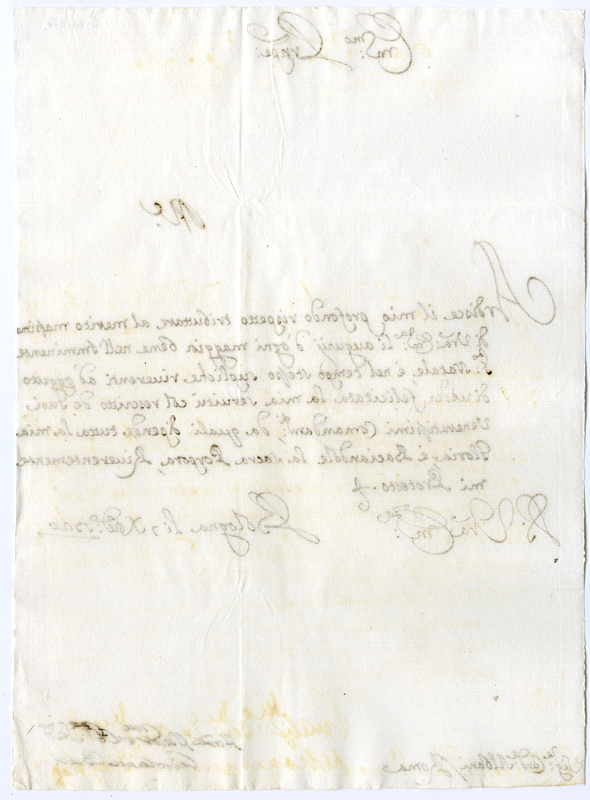 Em.mo Prnpe:
Ardisce il mio profondo rispetto tributare al merito massimo
di Vra: Em.za li augurij d'ogni maggior bene nell'Imminente
S.to Natale e nel tempo stesso supliche riverenti ad oggetto
di veder felicitata la mia servitù col rescritto de suoi
Veneratissimi Comandam.ti da quali dipende tutta la mia
Gloria e Baciandole la Sacra Porpora, Riverentemente
mi Protesto.
D. Vra Em:za
Bologna li 7 Xbre 1740
Sig.re Card.le Albani Roma